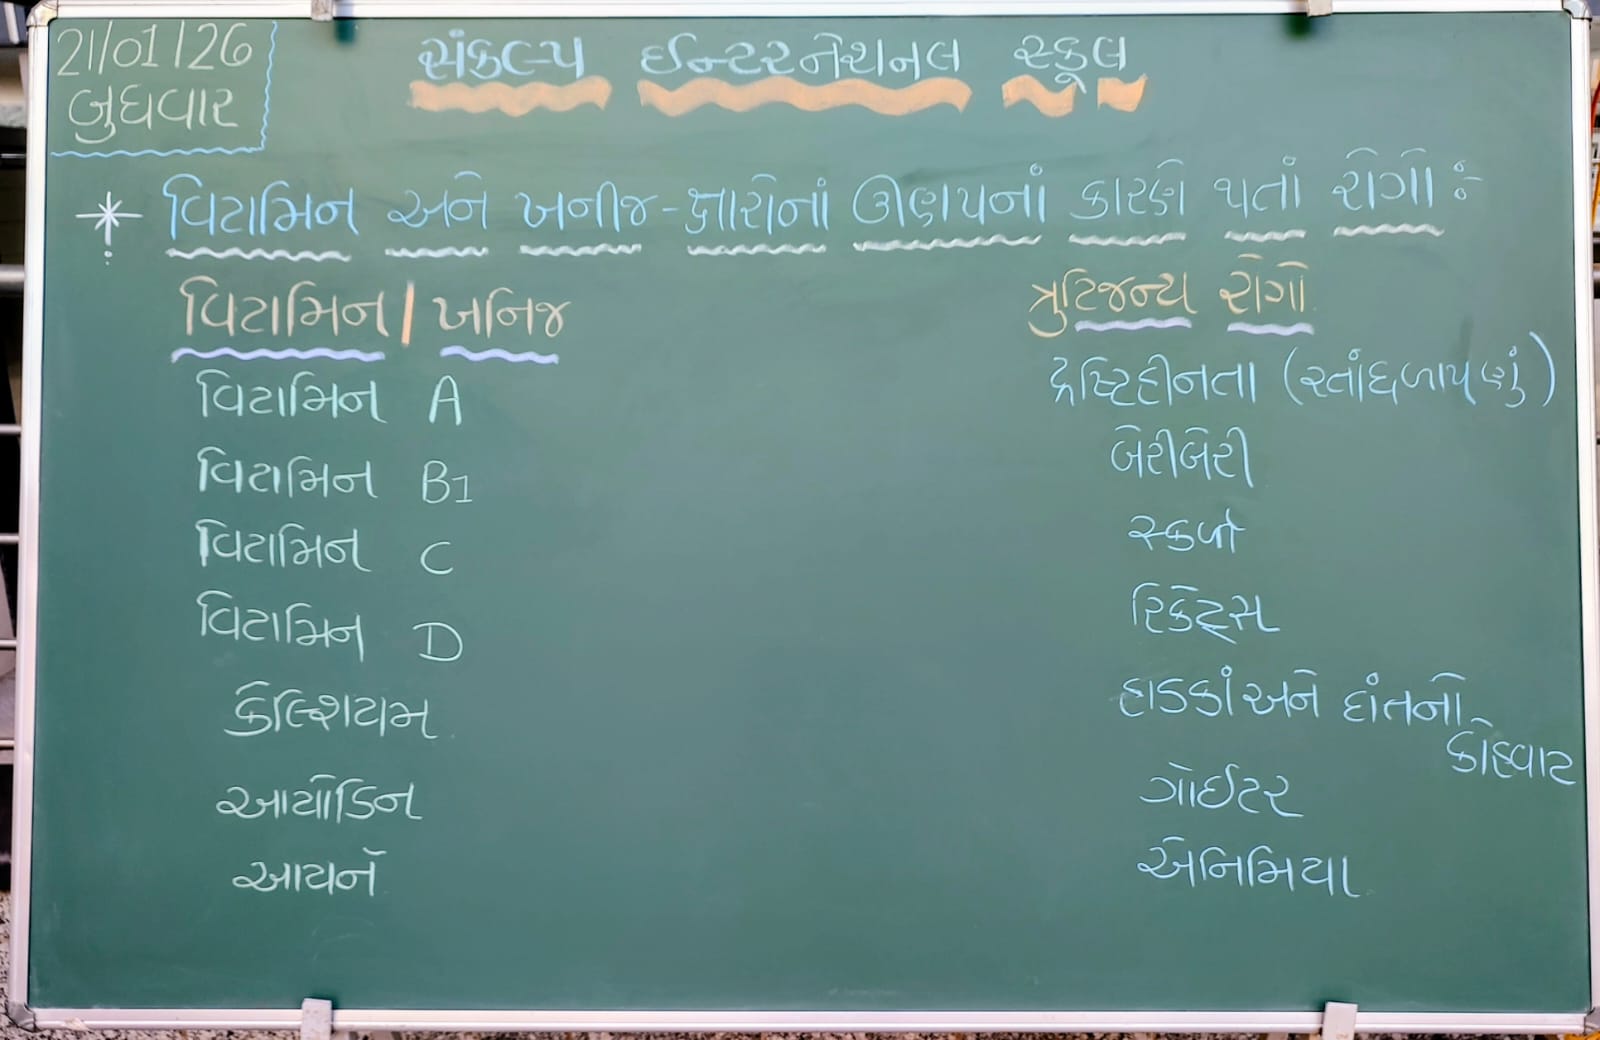 21/01/26
બુધવાર
સંકલ્પ ઈન્ટરનેશનલ સ્કૂલ
* વિટામિન અને ખનીજ-ક્ષારોનાં ઊણપનાં કારણે થતાં રોગો :-
વિટામિન / ખનિજ ત્રુટિજન્ય રોગો
વિટામિન A દ્રષ્ટિહીનતા (રતાંધળાપણું)
વિટામિન B1 બેરીબેરી
વિટામિન C સ્કર્વી
વિટામિન D રિકેટ્સ
કેલ્શિયમ હાડકાં અને દાંતનો
કોહવાટ
આયોડિન ગોઈટર
આયર્ન એનિમિયા